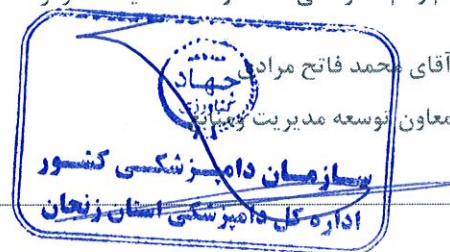 آقای محمد فاتح مرادی
معاون توسعه مدیریت و منابع
جهاد
کشاورزی
سازمان دامپزشکی کشور
اداره کل دامپزشکی استان زنجان